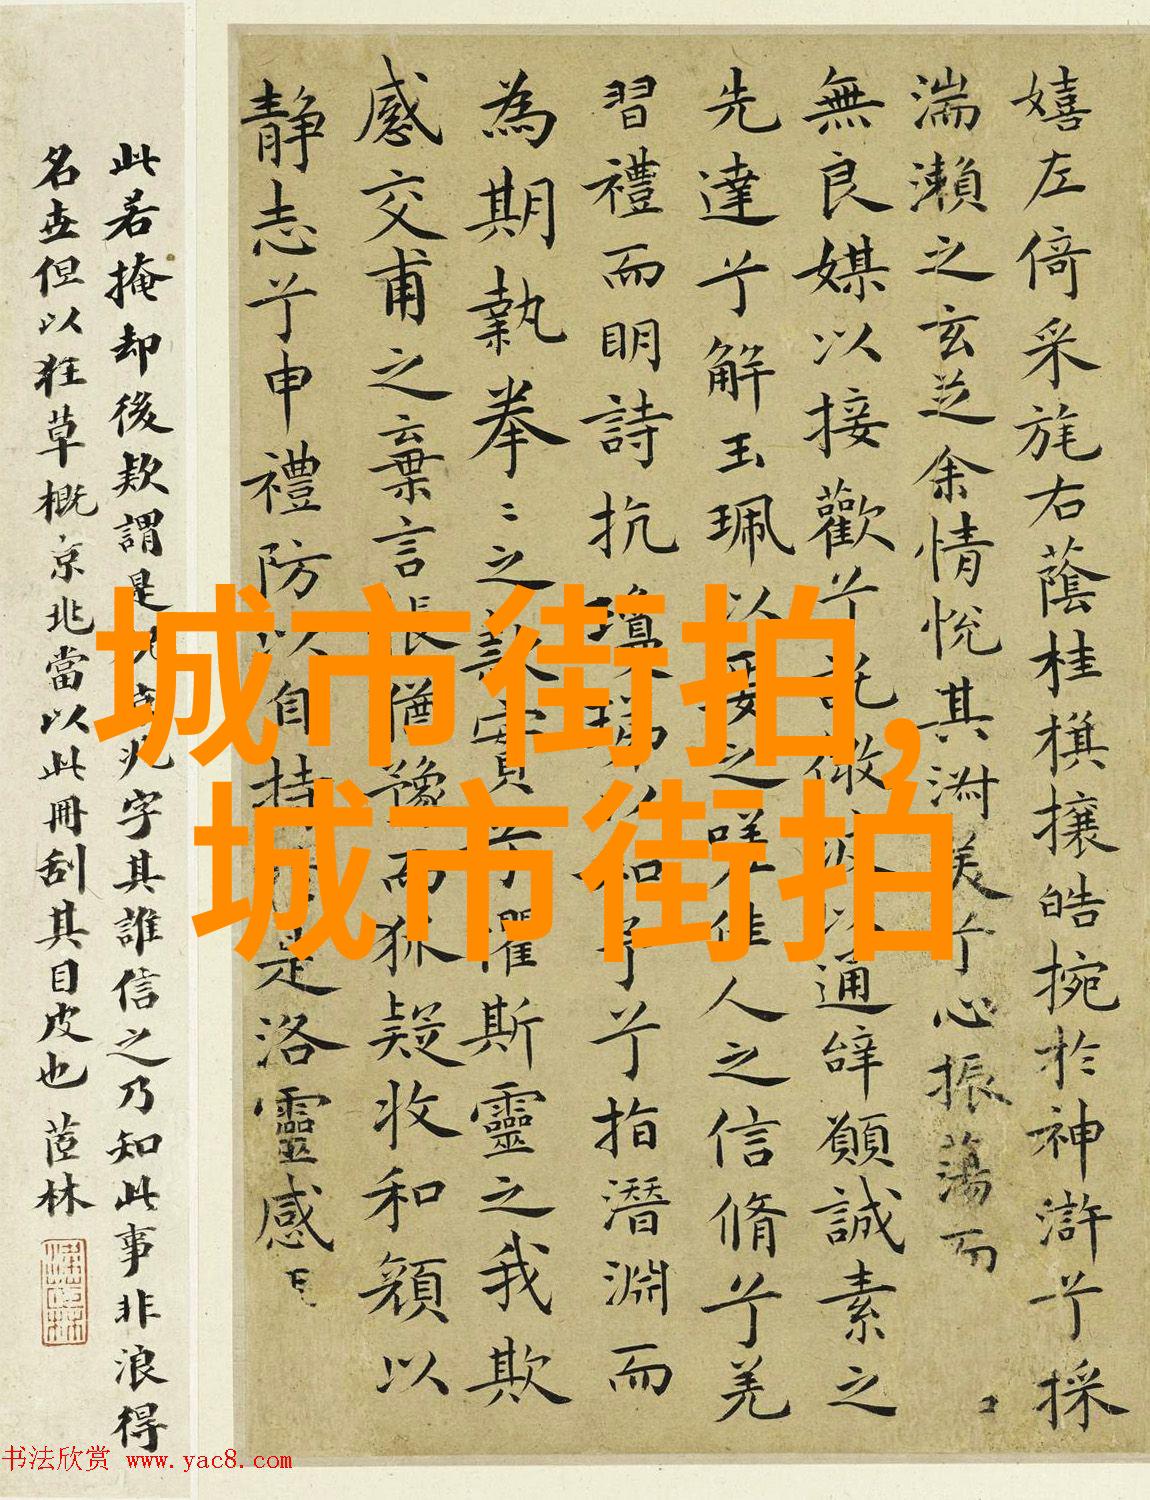 嬉左倚采旄右蔭桂棋攘皓捥於神滸兮採
湍瀨之玄芝余情悅其淑美兮心振蕩而
無良媒以接歡兮託微波以通辭願誠素之
先達兮解玉珮以要之嗟佳人之信脩兮羌
習禮而明詩抗瓊珶以和予兮指潛淵而
為期執拳〻之款實兮懼斯靈之我欺
感交甫之棄言悵猶豫而狐疑收和顏以
靜志兮申禮防以自持於是洛靈感
此若掩却後款謂是九京兆字其誰信之乃知此事非浪得
名世但以狂草概京兆當以此冊刮其目皮也 茝林
城市街拍,
城市街拍
书法欣赏 www.yac8.com